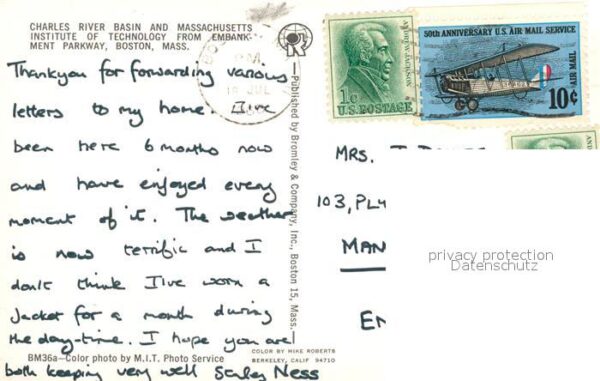 CHARLES RIVER BASIN AND MASSACHUSETTS
INSTITUTE OF TECHNOLOGY FROM EMBANK-
MENT PARKWAY, BOSTON, MASS.
Thankyou for forwarding various
letters to my home. I've
been here 6 months now
and have enjoyed every
moment of it. The weather
is now terrific and I
don't think I've worn a
Jacket for a month during
the day-time. I hope you are
both keeping very well
Ness
BM36a—Color photo by M.I.T. Photo Service
—Published by Bromley & Company, Inc., Boston 15, Mass.—
COLOR BY MIKE ROBERTS
BERKELEY, CALIF 94710
JUL
1c
U.S. POSTAGE
ANDREW JACKSON
50th ANNIVERSARY U.S. AIR MAIL SERVICE
AIR MAIL
10c
MRS.
103, PL
MAN
privacy protection
Datenschutz
EN